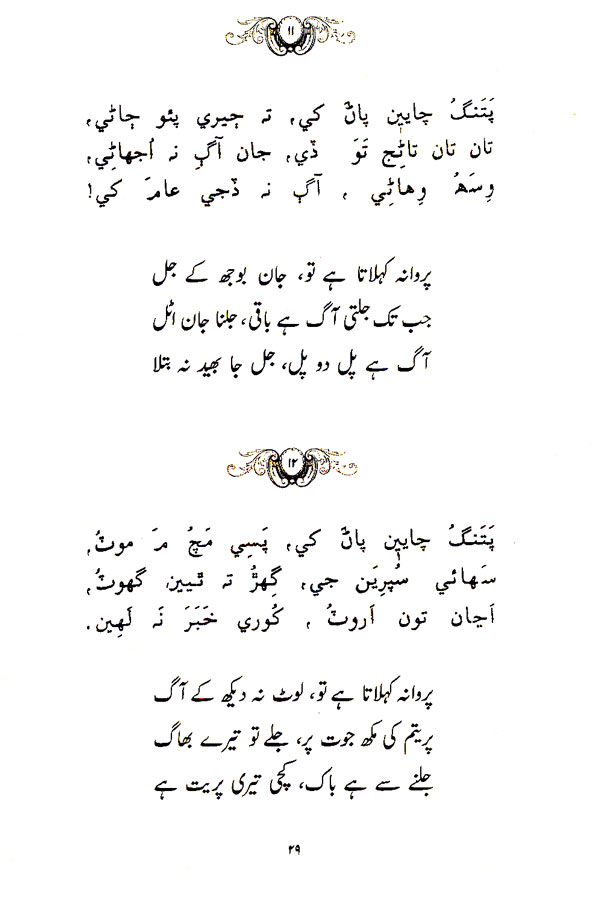 ۱۱
پَتَنگُ چايين پاڻَ کي، تہ جيري پئو ڄاڻي،
تان تان تاڻِج تَوَ ڏي، جان آڳ نہ اُجهاڻِي،
وِسَهُ وِهاڻِي ، آڳ نہ ڏجي عامَ کي!
پروانہ کہلاتا ہے تو، جان بوجھ کے جل
جب تک جلتی آگ ہے باقی، جلنا جان اٹل
آگ ہے پل دو پل، جل جا بھید نہ بتلا
۱۲
پَتَنگُ چايين پاڻَ کي، پَسِي مَچُ مَ موٽُ،
سَهائي سُپرِيَن جي، گِهڙُ تہ ٿيين گهوٽُ،
اَڃان تون اَروٽُ ، کُوري خَبَرَ نَہ لَهِين.
پروانہ کہلاتا ہے تو، لوٹ نہ دیکھ کے آگ
پریتم کی مکھ جوت پر، جلے تو تیرے بھاگ
جلنے سے ہے باک، کچی تیری پریت ہے
۲۹